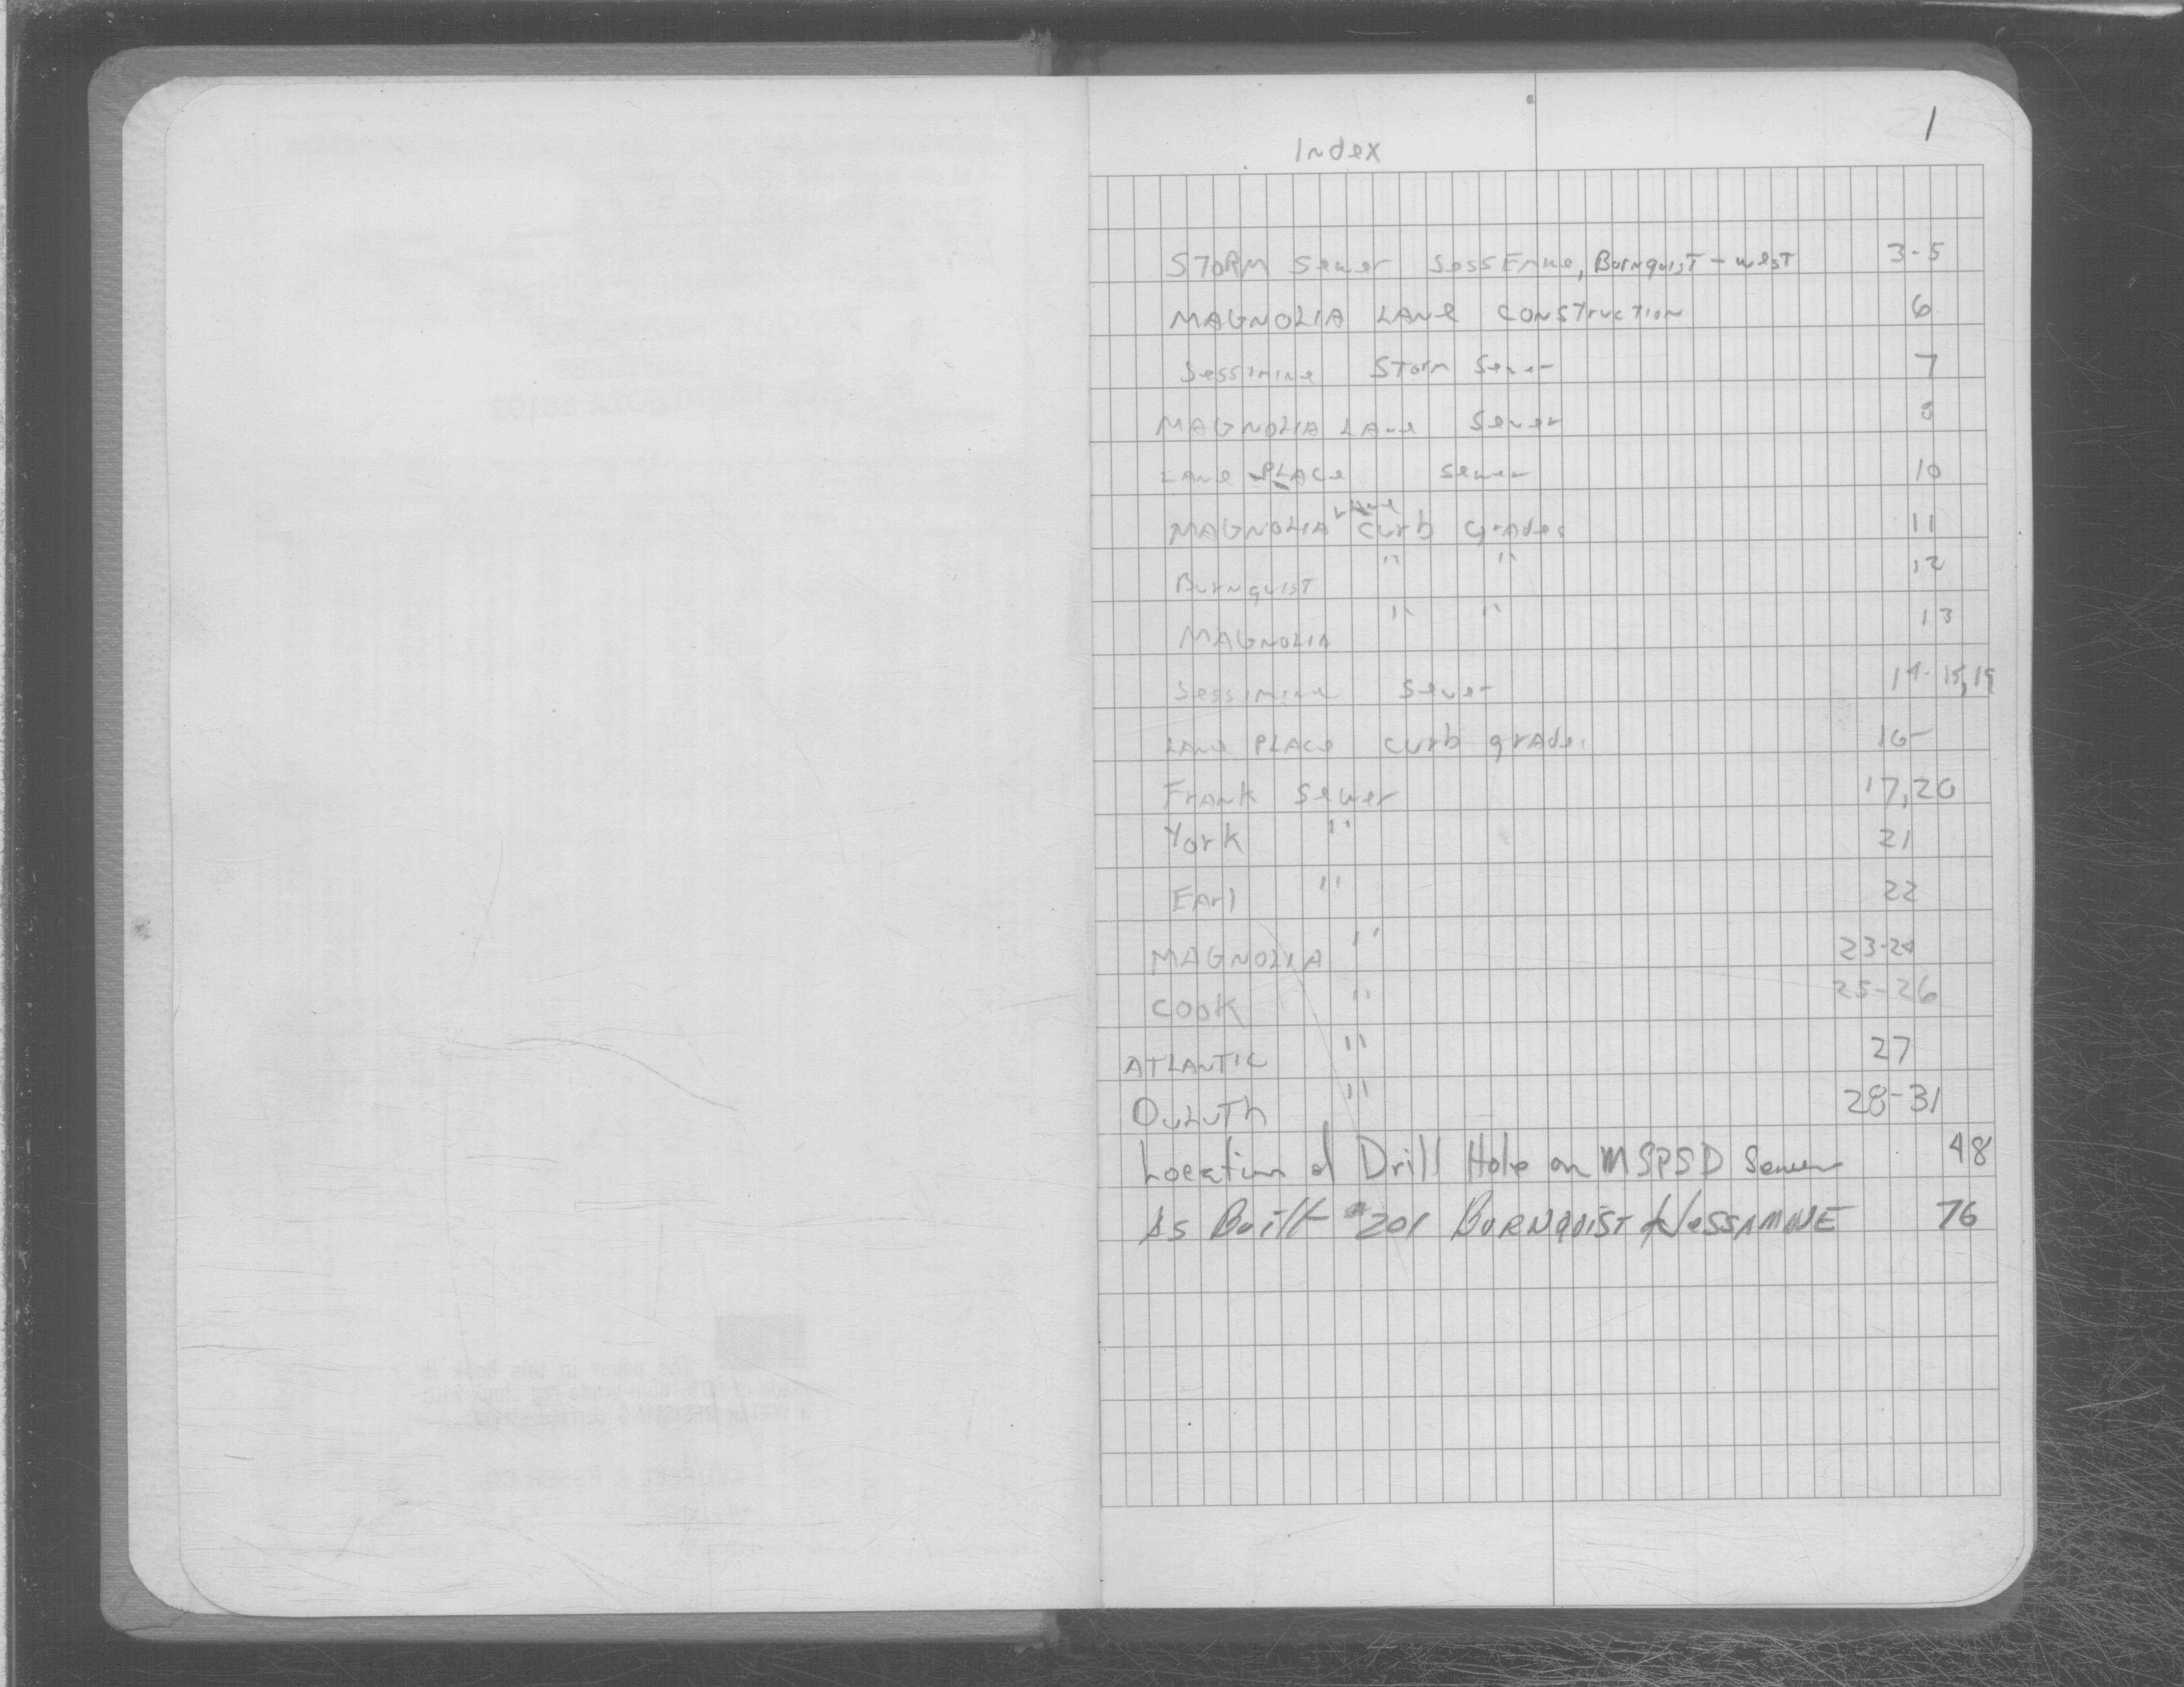 1
Index
STORM Sewer SessEmine, Burnquist - west 3-5
MAGNOLIA LANe CONSTrucTion 6
Sessimine STorm Sewer 7
MAGNOLIA LAne Sewer
LAne PLAce sewer 10
MAGNOLIA LAne curb grAdes 11
Burnquist " " 12
MAGNOLIA " " 13
Sessimine Sewer 14-15, 19
LAne PLAce curb grAdes 16-
FrAnk Sewer 17,20
York " 21
EArl " 22
MAGNOLIA " 23-24
COOK " 25-26
ATLANTIC " 27
DuLuTh " 28-31
Location of Drill Hole on MSPSD Sewer 48
As Built #201 BURNQUIST & JESSAMINE 76